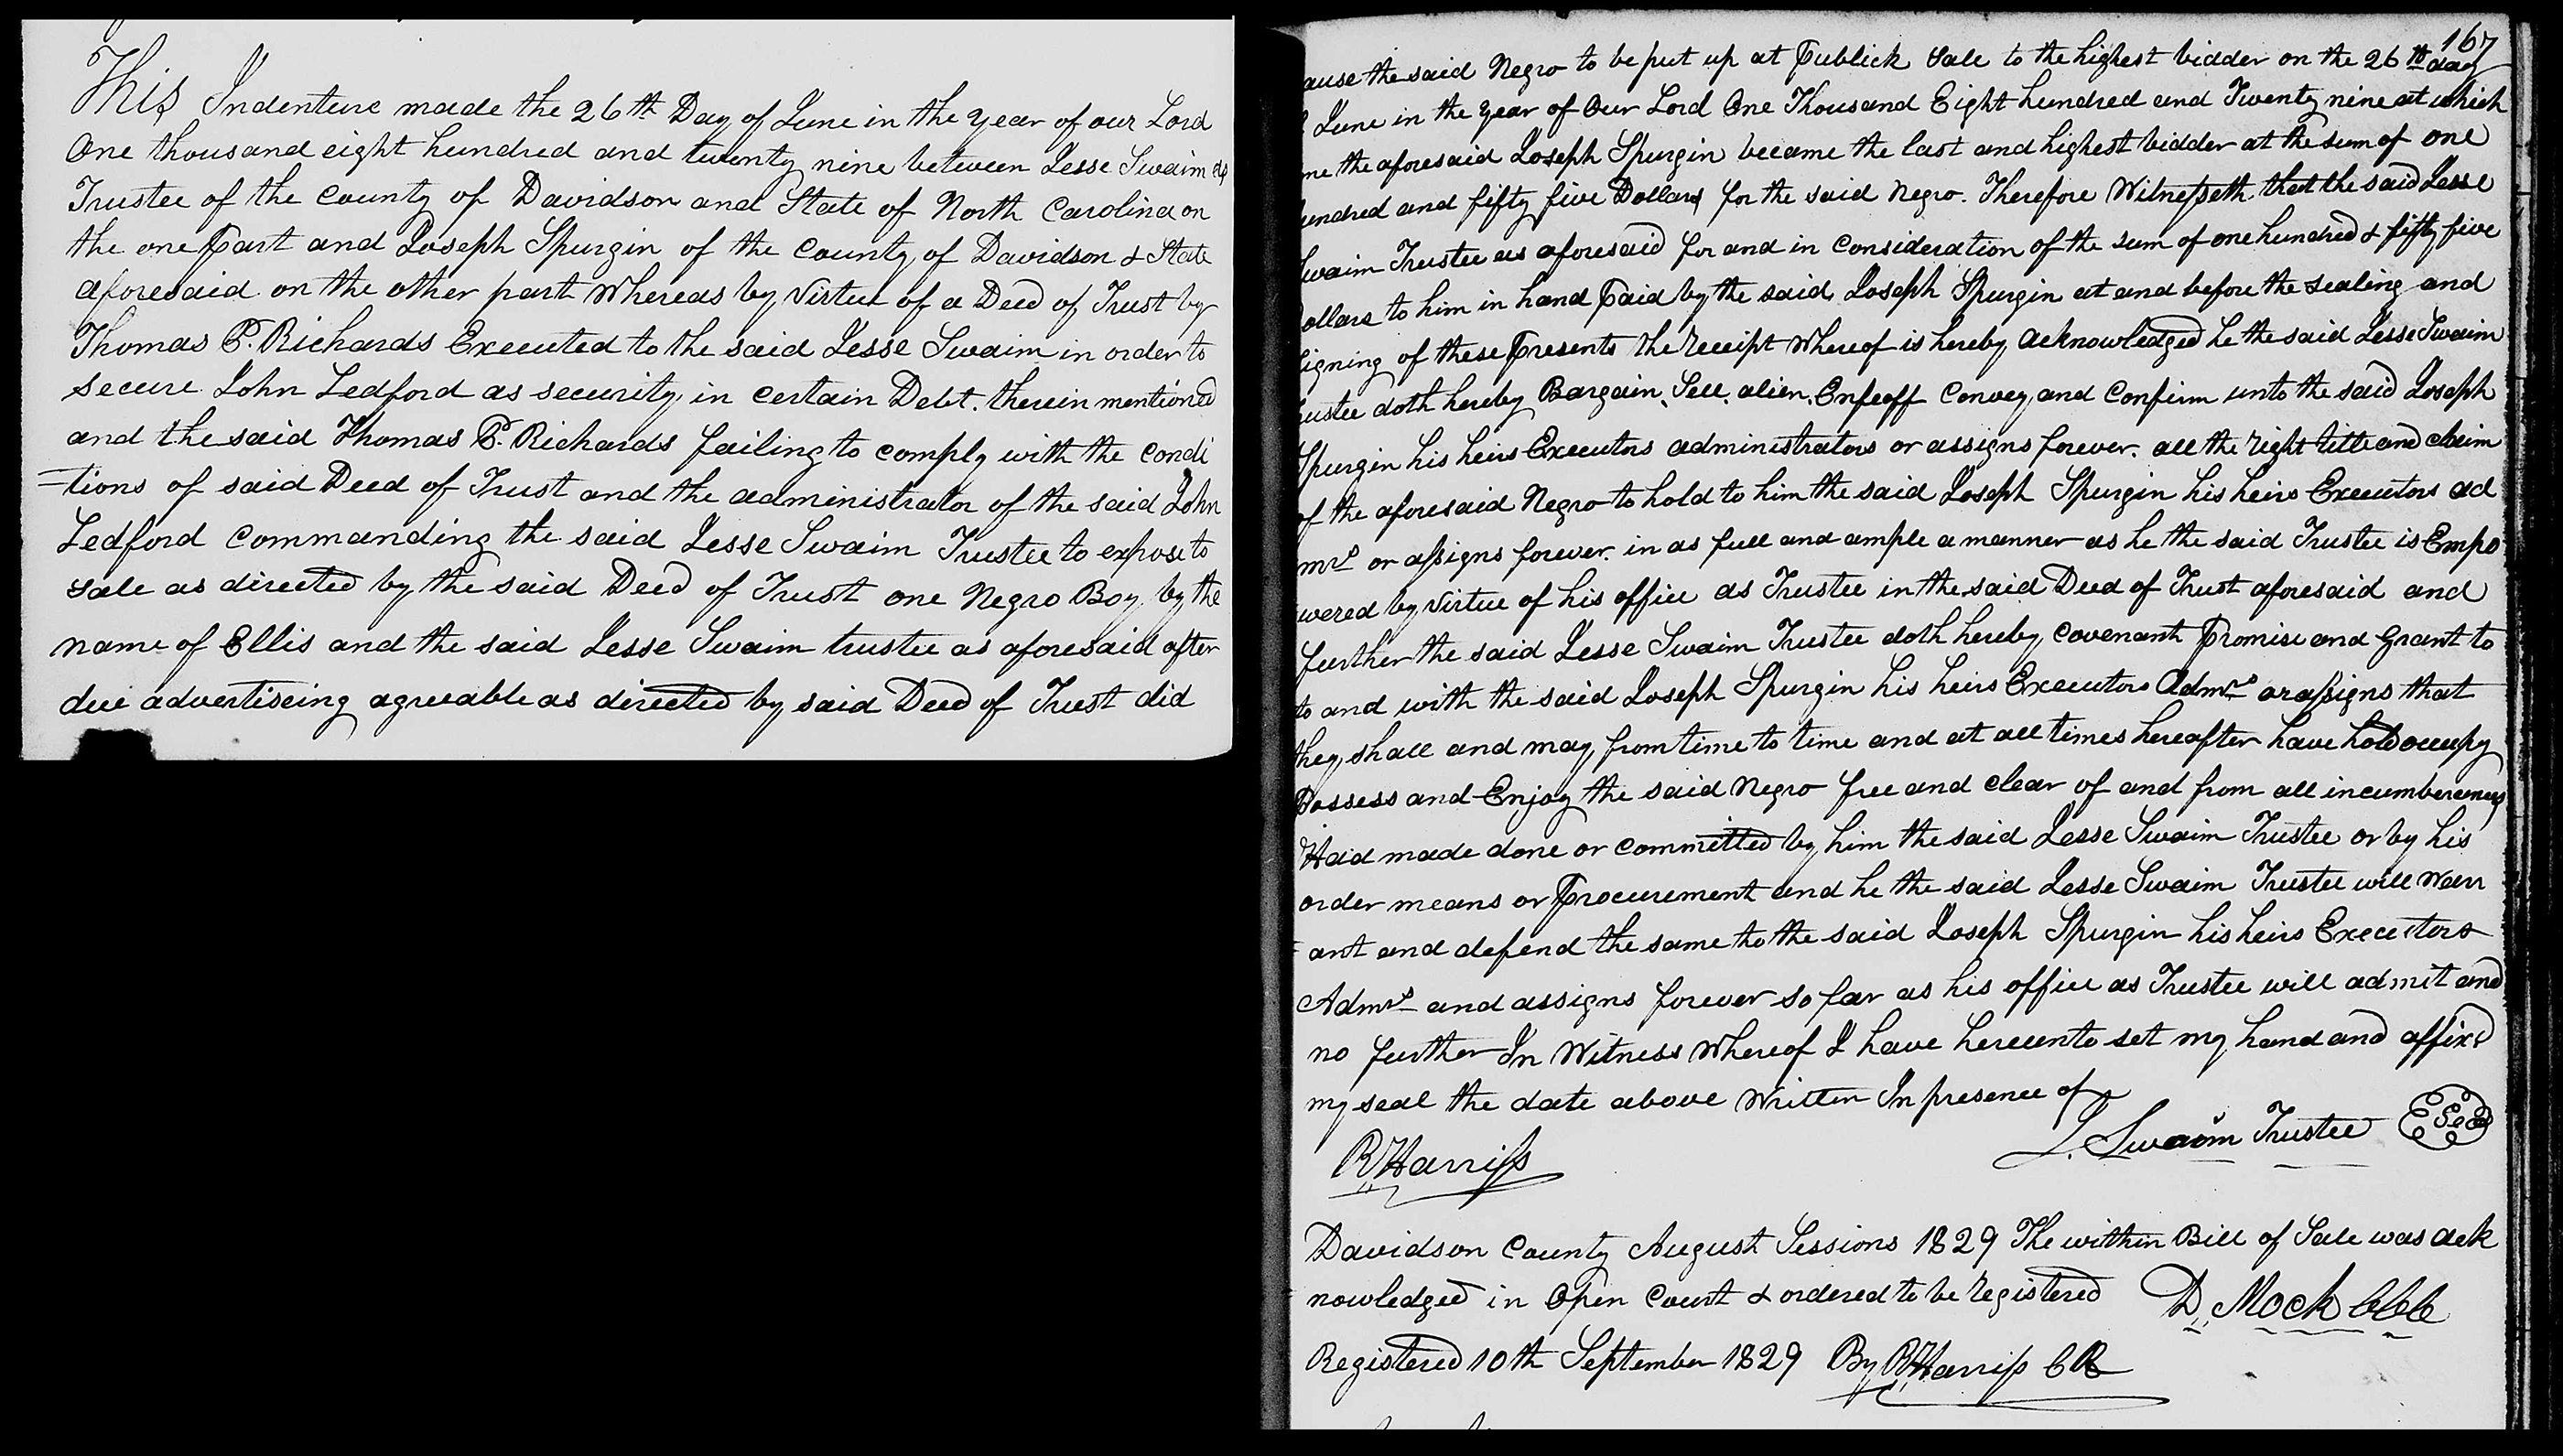 This Indenture made the 26th Day of June in the year of our Lord
One thousand eight hundred and twenty nine between Jesse Swaim
Trustee of the County of Davidson and State of North Carolina on
the one Part and Joseph Spurgin of the County of Davidson & State
aforesaid on the other part Whereas by Virtue of a Deed of Trust by
Thomas P. Richards Executed to the said Jesse Swaim in order to
secure John Ledford as security in certain Debt. therein mentioned
and the said Thomas P. Richards failing to comply with the condi
=tions of said Deed of Trust and the administrator of the said John
Ledford Commanding the said Jesse Swaim Trustee to expose to
sale as directed by the said Deed of Trust one Negro Boy by the
name of Ellis and the said Jesse Swaim trustee as aforesaid after
due advertiseing agreeable as directed by said Deed of Trust did
167
ause the said Negro to be put up at Publick Sale to the highest bidder on the 26th day
June in the year of Our Lord One Thousand Eight hundred and Twenty nine at which
me the aforesaid Joseph Spurgin became the last and highest bidder at the sum of one
undred and fifty five Dollars for the said Negro. Therefore Witnesseth that the said Jesse
Swaim Trustee as aforesaid for and in Consideration of the sum of one hundred & fifty five
ollars to him in hand Paid by the said Joseph Spurgin at and before the sealing and
igning of these Presents the receipt Whereof is hereby acknowledged he the said Jesse Swaim
rustee doth hereby Bargain, Sell, alien, Enfeoff Convey and Confirm unto the said Joseph
Spurgin his heirs Executors administrators or assigns forever. all the right title and claim
of the aforesaid Negro to hold to him the said Joseph Spurgin his heirs Executors ad
mrs or assigns forever. in as full and ample a manner as he the said Trustee is Empo
wered by Virtue of his office as Trustee in the said Deed of Trust aforesaid and
further the said Jesse Swaim Trustee doth hereby Covenant Promise and Grant to
to and with the said Joseph Spurgin his heirs Executors Admrs or assigns that
they shall and may from time to time and at all times hereafter have hold occupy
Possess and Enjoy the said Negro free and clear of and from all incumberences
Had made done or committed by him the said Jesse Swaim Trustee or by his
order means or Procurement and he the said Jesse Swaim Trustee will Warr
=ant and defend the same to the said Joseph Spurgin his heirs Executors
Admrs and assigns forever so far as his office as Trustee will admit and
no further In Witness Whereof I have hereunto set my hand and affixd
my seal the date above Written In presence of
J. Swaim Trustee Seal
R Harriss
Davidson County August Sessions 1829 The within Bill of Sale was ack
nowledged in Open Court & ordered to be registered D. Mock CCC
Registered 10th September 1829 By R Harriss CR